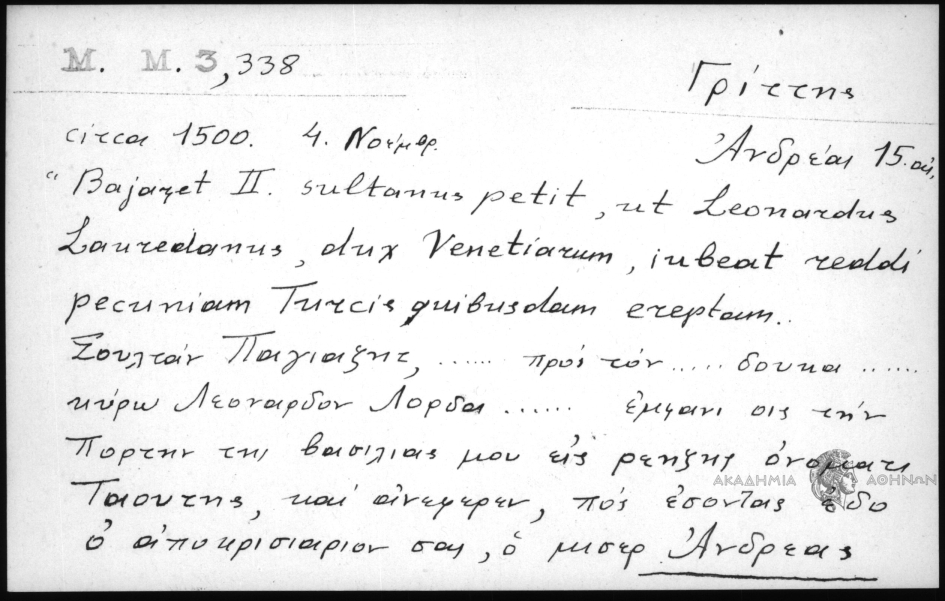 M. M. 3, 338
Γρίττης
circa 1500. 4. Νοέμβρ.
Ἀνδρέας 15. αἰ.
"Bajazet II. sultanus petit, ut Leonardus
Lauredanus, dux Venetiarum, iubeat reddi
pecuniam Turcis quibusdam ereptam..
Σουλτάν Παγιαζητ, ...... πρός τόν ..... δουκα ......
κύρω Λεοναρδον Λορδα ...... ἐμφανι σις τήν
Πορτην της βασιλιας μου εἰς ρεηζης ὀνοματι
Ταουτης, καί ἀνεφερεν, πός ἐσοντας ἐδο
ὁ ἀποκρισιαριον σας, ὁ μισερ Ἀνδρεας
ΑΚΑΔΗΜΙΑ ΑΘΗΝΩΝ